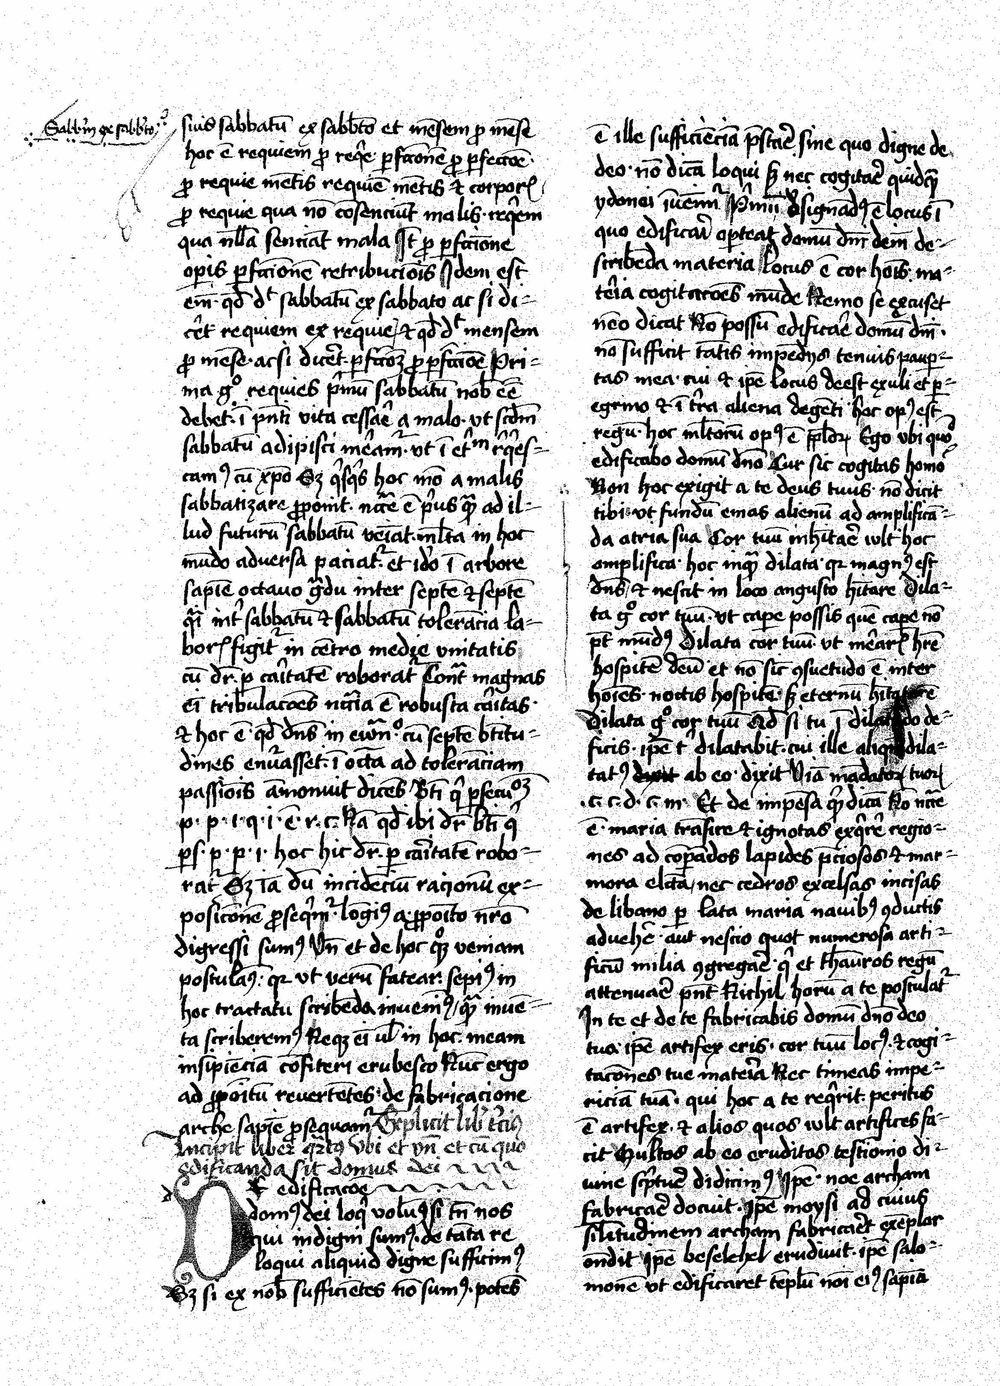 Sabbm̄ ex sabbto
suis sabbatū ex sabbto et mēsem p mēse
hoc ē requiem p reqe pfcōnem p pfectōe
p requie mētis requiē mētis & corporꝭ
p requie qua nō cōsenciūt malis reqem
qua nlla senciāt mala It p pfcōne
opis pfcōnem retribucōis Idem est
em̄ qd dt sabbatū ex sabbato ac si di-
cet requiem ex requie & qd dt mensem
p mēse ac si dicet pfcōꝫ p pfcōe Pri-
ma go requies pmū sabbatū nob ēē
debet ī pnti vita cessare a malo vt scdm
sabbatū adipisci meamr vt ī etnm reqes-
camꝰ cū xpō Sꝫ qsqs hoc mō a malis
sabbatizare pponit ncce ē pus qm ad il-
lud futurū sabbatū veiat mlta in hoc
mūdo adversa paciatr et ido ī arbore
sapie octauo gdu inter septē & septē
qi int sabbatū & sabbatū tolerācia la-
borꝭ figitr in cētro medie vnitatis
cū dr p caitatē roboratr Cont magnas
ei tribulacōes ncciā ē robusta caitas
& hoc ē qd dns in ewno cū septē btitu-
dines enuasset ī octa ad toleranciam
passiōis āmonuit dicēs Bti q psecucōꝫ
p. p. i. q. i. ē. r. c. Nā qd ibi dr bti q
ps. p. p. i. hoc hic dr p caitatē robo-
ratr Sꝫ iā dū incidenciū racionū ex-
posicōnē pseqmr longiꝰ a pposito nro
digressi sumꝰ Vn et de hoc qꝫ veniam
postulamꝰ qr vt verū fatear sepiꝰ in
hoc tractatu scribēda invenimꝰ qm inuē-
ta scriberemꝰ Neqꝫ ei vl in hoc meam
insipiēciā cōfiteri erubesco Nūc ergo
ad ppoitū revertētes de fabricacione
arche sapie psequamr Explicit lib tcius
Incipit liber qrtus Vbi et vn et cū quo
edificanda sit domus dei
De edificacōe
domꝰ dei loqi volumꝰ si tn nos
qui indigni sumꝰ de tāta re
loqui aliquid digne sufficimꝰ
Sꝫ si ex nob sufficiētes nō sumꝰ potēs
ē ille sufficiēciā pstare sine quo digne de
deo nō dicā loqui sꝫ nec cogitare quidqm
ydonei iuenimr Pmū dsignādꝰ ē locus ī
quo edificari oporteat domū dni dein de-
scribēda materia Locus ē cor hōis ma-
teria cogitacōes mūde Nemo se excuset
nēo dicat Nō possū edificare domū dni
nō sufficit tātis impēdiis tenuis paup-
tas mea cui & ipe locus deest exuli et p-
egrino & ī tra aliena degēti hoc opꝰ est
regū hoc mltorū opꝰ ē pplorꝫ Ego vbi quō
edificabo domū dno Cur sic cogitas homo
Non hoc exigit a te deus tuus nō dicit
tibi vt fundū emas alienū ad amplificā-
da atria sua Cor tuū inhitare wlt hoc
amplifica hoc inqm dilata qr magnꝰ est
dns & nescit in loco angusto hitare Dila-
ta go cor tuū vt cape possis quē cape nō
pt mūdꝰ Dilata cor tuū vt mearꝭ hre
hospitē deū et nō sic ꝯsuetudo ē inter
hoies noctis hospitē sꝫ eternū hitatore
Dilata go cor tuū Qd si tu ī dilatādo de-
ficis ipe te dilatabit cui ille aliqn dila-
tatꝰ ab eo dixit Viā mādatorꝫ tuorꝫ
.c. c. d. c. m. Et de impēsa qd dicā Nō ncce
ē maria trāsire & ignotas exqrere regio-
nes ad cōpādos lapides pciosos & mar-
mora elcta nec cedros excelsas incisas
de libano p lata maria nauibꝰ ꝯductis
aduehe aut nescio quot numerosa arti-
ficū milia ꝯgregare q et thauros regū
attenuare pnt Nichil horū a te postulatr
In te et de te fabricabis domū dno deo
tuo ipe artifex eris cor tuū locꝰ & cogi-
tacōnes tue materia Nec timeas impe-
riciā tuā qui hoc a te reqrit peritus
ē artifex & alios quos wlt artifices fa-
cit Multos ab eo eruditos testimōio di-
uine scpture didicimꝰ Ipe noe archam
fabricare docuit Ipe moysi ad cuius
silitudinem archam fabricaret exēplar
ondit Ipe beselehel erudiuit ipe salo-
monē vt edificaret tēplū noi eiꝰ sapiā